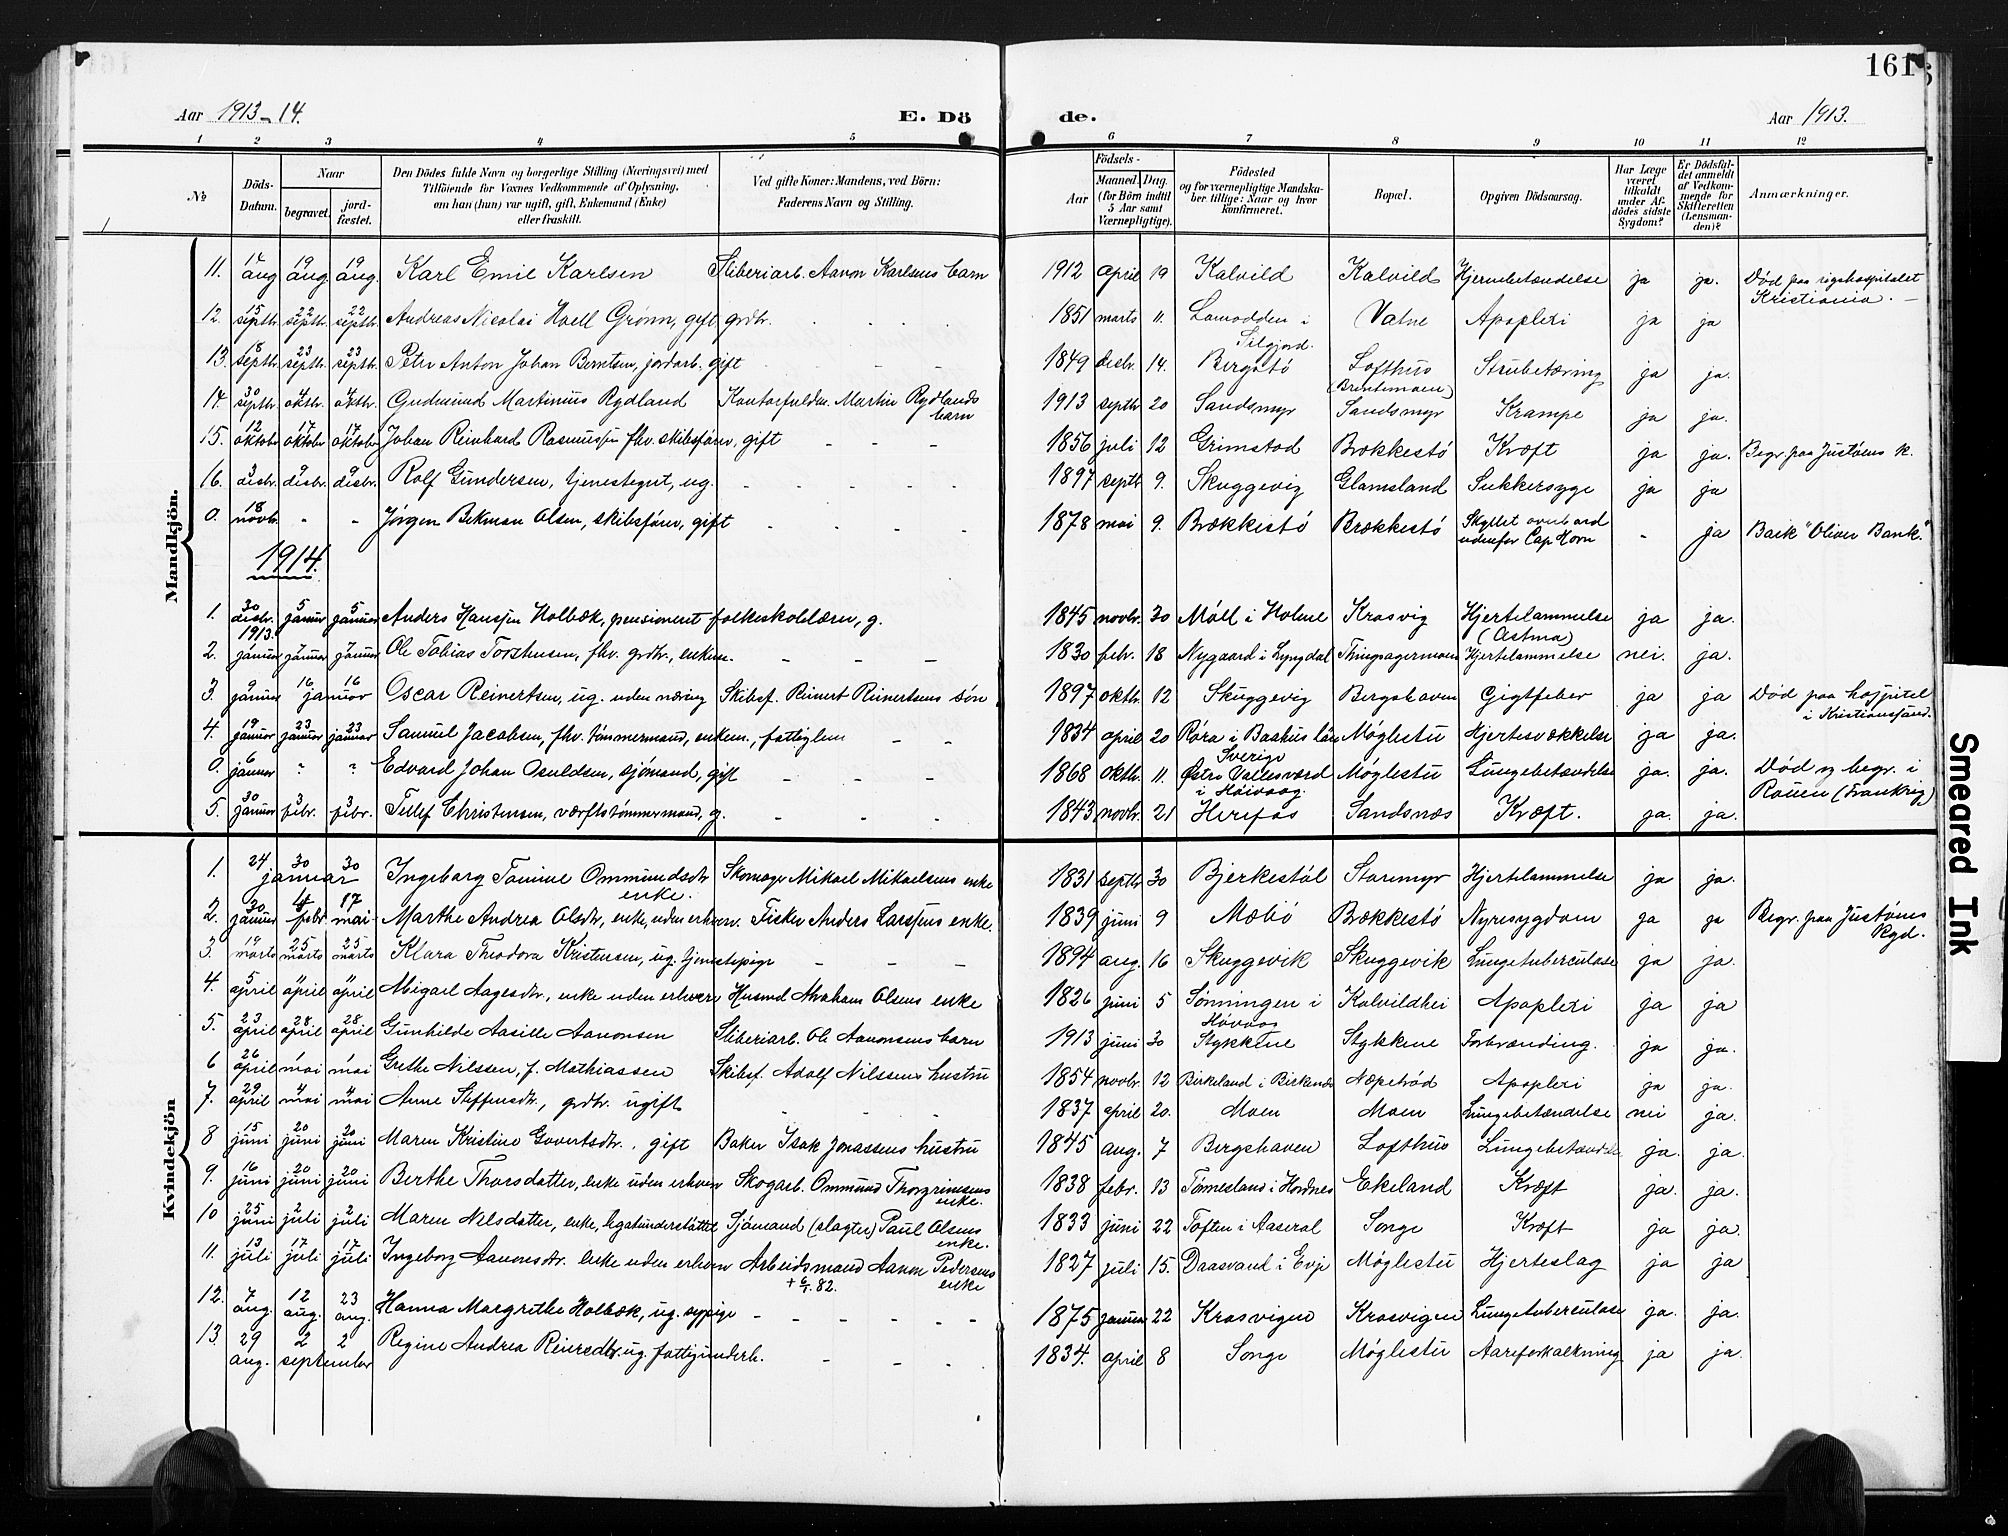 161
Aar 1913-14. E. Dö de. Aar 1913.
1 2 3 4 5 6 7 8 9 10 11 12
No. Döds-Datum. Naar begravet. jord-fæstet. Den Dödes fulde Navn og borgerlige Stilling (Næringsvei) med Tilföiende for Voxnes Vedkommende af Oplysning, om han (hun) var ugift, gift, Enkemand (Enke) eller fraskilt. Ved gifte Koner: Mandens, ved Börn: Faderens Navn og Stilling. Födsels- Aar Maaned. Dag. (for Börn indtil 5 Aar samt Værnepligtige). Födested og for værnepligtige Mandskaber tillige: Naar og hvor konfirmeret. Bopæl. Opgiven Dödsaarsag. Har Læge været tilkaldt under Afdödes sidste Sygdom? Er Dödsfaldet anmeldt af Vedkommende for Skifteretten (Lensmanden)? Anmærkninger.
Mandkjön.
11. aug 19 aug. 19 aug. Karl Emil Karlsen Sliberiarb. Aanon Karlsens barn 1912 april 19 Kalvild Kalvild Hjernebetændelse ja ja. Död paa rigshospitalet Kristiania.
12. 15 septbr. 22 septbr. 22 septbr. Andreas Nicolai Hoell Grönn, gift grdbr. 1851 marts 11. Lamodden i Silgjord. Vatne Apoplexi ja ja
13. 18 septbr. 23 septbr. 23 septbr. Peter Anton Johan Berntsen, jordarb. gift 1849 desbr. 14. Bergstö Lofthus (Brentemoen) Strubetæring ja ja.
14. 30 septbr. 4 oktbr. 4 oktbr. Gudmund Martinius Rydland Kontorfuldm. Martin Rydlands barn 1913 septbr 20 Sandsmyr Sandsmyr Krampe ja ja.
15. 12 oktober 17 oktober 17 oktober Johan Reinhard Rasmussen fhv. skibsförer, gift 1856 juli 12 Grimstad Brækkestö Kræft ja ja. Begr. paa Justöens k.
16. 3 desbr. 9 desbr. 9 desbr. Rolf Gundersen, tjenestegut, ug. 1897 septbr 9. Skuggevig Glamsland Sukkersyge ja ja
0. 18 novb. Jörgen Bekman Olsen, skibsförer, gift 1878 mai 9. Brækkestö Brækkestö Skyllet overbord udenfor Cap Horn - ja Bark "Oliver Bank."
1914.
1. 30 desbr. 1913. 5 januar 5 januar Anders Hanssen Holbæk, pensioneret folkeskolelærer, g. 1845 novbr. 30 Möll i Holme Krosvig Hjertelammelse (Astma) ja ja.
2. januar 7 januar 7 januar Ole Tobias Torstensen, fhv. grdbr., enkem. 1830 febr. 18 Nygaard i Lyngdal Thingsagermoen Hjertelammelse nei. ja.
3. 9 januar 16 januar 16 Oscar Reinertsen, ug. uden næring Skibsf. Reinert Reinertsens sön 1897 oktbr. 12 Skuggevig Bergshaven Gigtfeber ja ja Död paa hospitel i Kristianssand.
4. 19 januar 23 januar 23 januar Samuel Jacobsen, fhv. tömmermand, enkem., fattiglem 1834 april 20 Röra i Baahus län Sverige Möglestu Hjertesvækkelse ja ja.
0. 6 januar ? ? Edvard Johan Osuldsen, sjömand, gift 1868 oktbr. 11. Östre Vallesværd i Höivaag. Möglestu Lungebetændelse ja. ja. Död og begr. i Rouen (Frankrig)
5. 30 januar 3 febr. 3 febr. Tellef Christensen, værftstömmermand, g. 1843 novbr. 21 Herefos Sandsnæs Kræft. ja. ja.
Kvindekjön
1. 24 januar 30 30 Ingeborg Tomine Ommundsdtr enke. Skomager Mikael Mikaelsens enke 1831 septbr 30 Bjerkestöl Storemyr Hjertelammelse ja ja.
2. 30 januar febr. 17 mai Marthe Andrea Olsdtr, enke, uden erhverv. Fisker Anders Larssens enke. 1839 juni 9 Mæbö Brækkestö Nyresygdom ja ja Begr. paa Justöens kgd.
3. 19 marts 25 marts 25 marts Klara Theodora Kristensen, ug. tjenestepige 1894 aug. 16 Skuggevik Skuggevik Lungetuberculose ja ja.
4. 5 april 11 april 11 april Abigael Aagesdtr., enke uden erhverv Husmd Abraham Olsens enke 1826 juni 5 Sönningen i Hövaag Kalvildhei Apoplexi ja ja
5. 23 april 28 april 28 april Gunhilde Aasille Aanonsen Sliberiarb. Ole Aanonsens barn 1913 juni 30 Stykkene Stykkene Forbrænding. ja ja.
6 26 april 1 mai 1 mai Grethe Nilsen, f. Mathiassen Skibsf. Adolf Nilssens hustru 1854 novbr. 12 Birkeland i Birkenæs Næperöd Apoplexi ja ja.
7. 29 april 4 mai 4 mai Anne Steffensdtr., grdbr. ugift 1837 april 20. Moen Moen Lungebetændelse nei ja.
8 15 juni 20 juni 20 juni Maren Kristine Govertsdtr., gift Baker Isak Jonassens hustru 1845 aug. 7 Bergshaven Lofthus Lungebetændelse ja. ja.
9. 16 juni 20 juni 20 juni Berthe Thorsdatter, enke uden erhverv Skogarb. Ommund Thorgrimsens enke. 1838 febr. 13 Tönnesland i Hordnes Ekeland Kræft ja. ja.
10 25 juni 2 juli 2 juli Maren Nilsdatter, enke, legatunderstöttet Sjömand (slagter) Paul Olsens enke. 1833 juni 22 Toften i Aaseral Songe Kræft ja ja.
11. 13 juli 17 juli 17 juli Ingeborg Aanonsdtr. enke uden erhverv Arbeidsmand Aanon Pedersens enke + 6/1 82. 1827 juli 15. Draasvand i Evje Möglestu Hjerteslag ja ja
12. 7 aug. 12 aug. 23 aug. Hanna Margrethe Holbæk, ug. sypige 1875 januar 22 Krosvigen Krosvigen Lungetuberculose ja. ja.
13. 29 aug. 2 september 2 Regine Andrea Reiersdtr. ug. fattigunderh. 1834. april 8 Songe Möglestu Aareforkalkning ja ja.
Smeared Ink